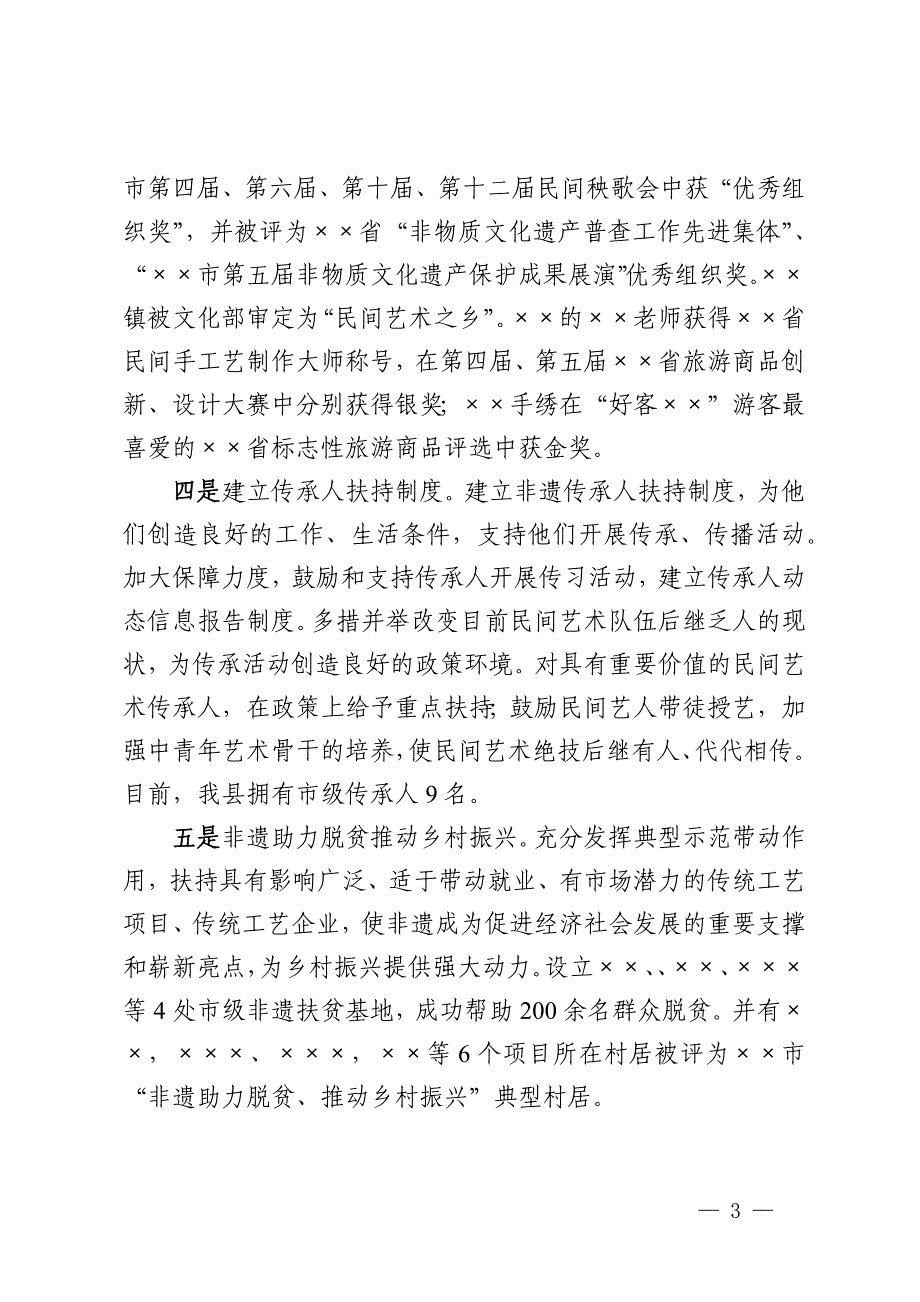 市第四届、第六届、第十届、第十二届民间秧歌会中获“优秀组
织奖”，并被评为××省“非物质文化遗产普查工作先进集体”、
“××市第五届非物质文化遗产保护成果展演”优秀组织奖。××
镇被文化部审定为“民间艺术之乡”。××的××老师获得××省
民间手工艺制作大师称号，在第四届、第五届××省旅游商品创
新、设计大赛中分别获得银奖；××手绣在“好客××”游客最
喜爱的××省标志性旅游商品评选中获金奖。
四是建立传承人扶持制度。建立非遗传承人扶持制度，为他
们创造良好的工作、生活条件，支持他们开展传承、传播活动。
加大保障力度，鼓励和支持传承人开展传习活动，建立传承人动
态信息报告制度。多措并举改变目前民间艺术队伍后继乏人的现
状，为传承活动创造良好的政策环境。对具有重要价值的民间艺
术传承人，在政策上给予重点扶持；鼓励民间艺人带徒授艺，加
强中青年艺术骨干的培养，使民间艺术绝技后继有人、代代相传。
目前，我县拥有市级传承人9名。
五是非遗助力脱贫推动乡村振兴。充分发挥典型示范带动作
用，扶持具有影响广泛、适于带动就业、有市场潜力的传统工艺
项目、传统工艺企业，使非遗成为促进经济社会发展的重要支撑
和崭新亮点，为乡村振兴提供强大动力。设立××、、××、×××
等4处市级非遗扶贫基地，成功帮助200余名群众脱贫。并有×
×，×××、×××，××等6个项目所在村居被评为××市
“非遗助力脱贫、推动乡村振兴”典型村居。
— 3 —